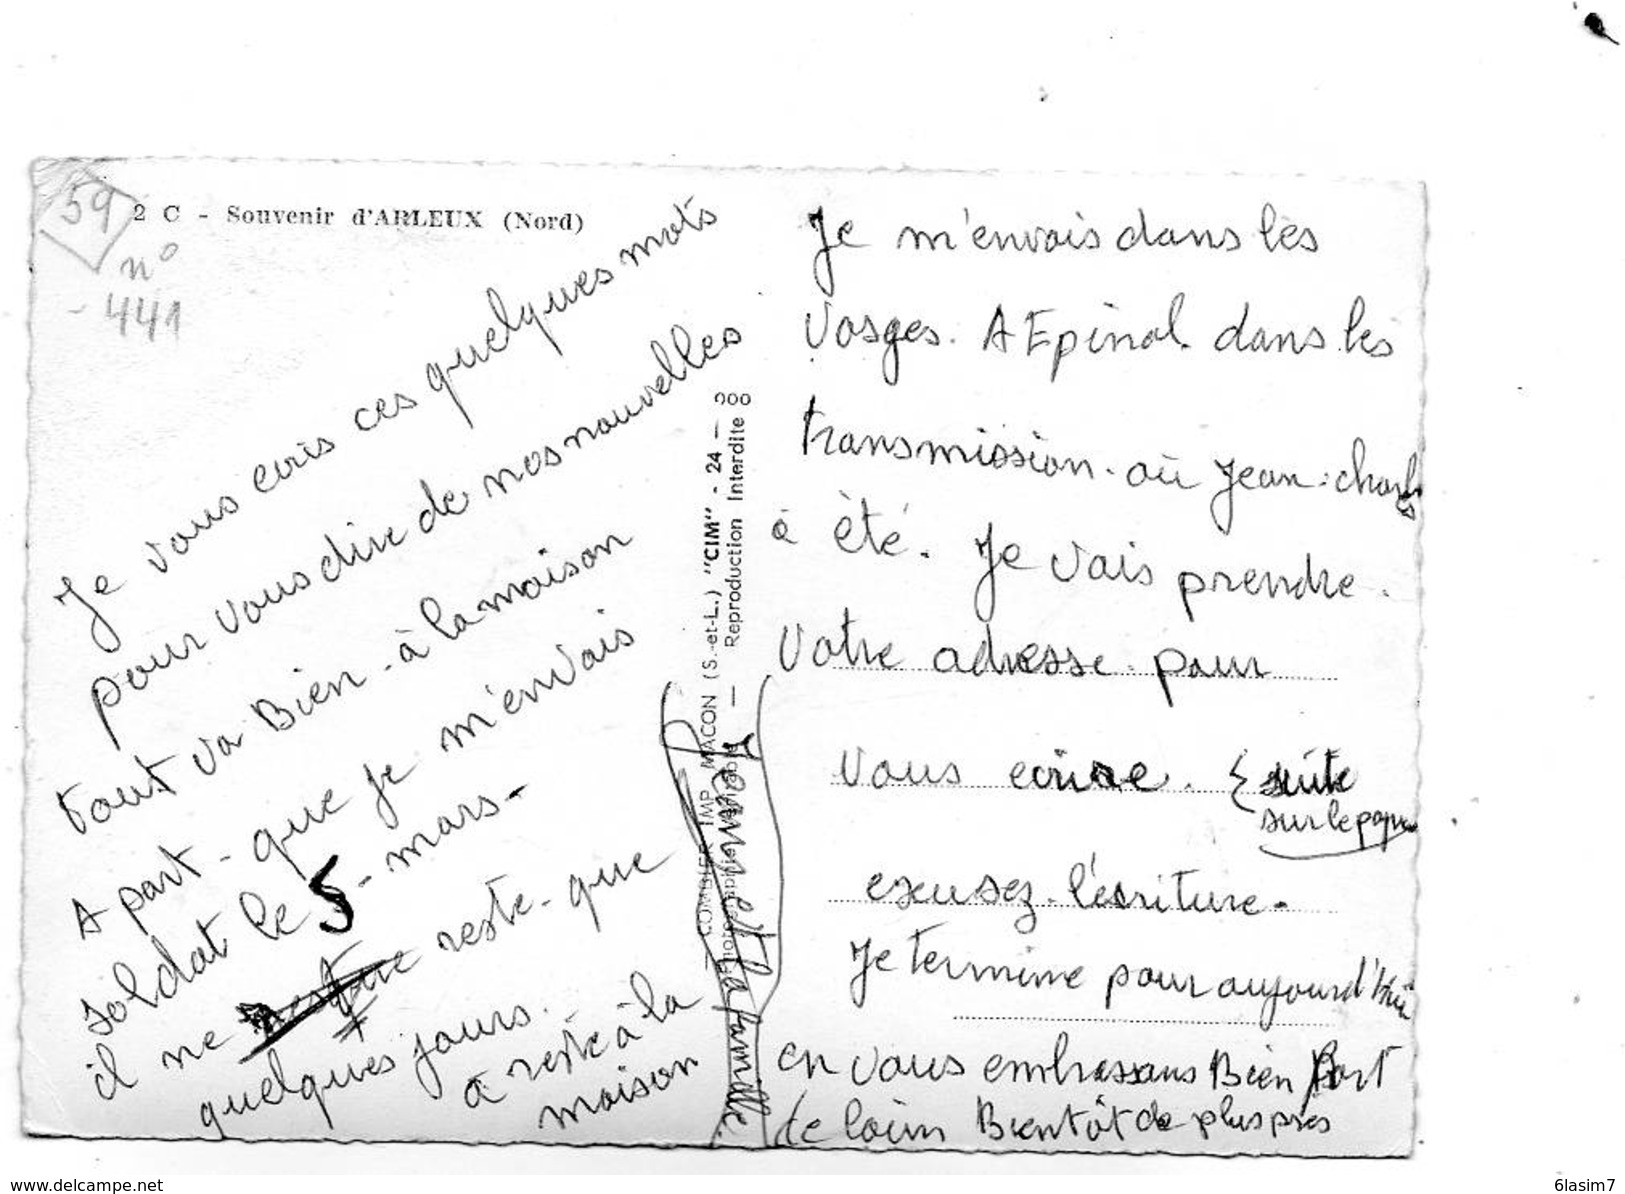 59
n°
-441
2 C - Souvenir d'ARLEUX (Nord)
Je vous ecris ces quelques mots
pour vous dire de nos nouvelles
tout va Bien - à la maison
A part - que je m'envais
soldat le 5 - mars -
il ne reste - que
quelques jours.
a reste à la
maison
COMBIER IMP. MACON (S.-et-L.) "CIM" - 24 -
Reproduction Interdite
et la famille.
Je m'envais dans les
Vosges. A Epinal. dans les
transmission. où Jean-charles
à été. Je vais prendre.
Votre adresse. pour
vous ecrire. { suite
sur le papier
excusez. l'écriture.
Je termine pour aujourd'hui
en vous embrassans Bien fort
de loin Bientôt de plus près
www.delcampe.net
6lasim7